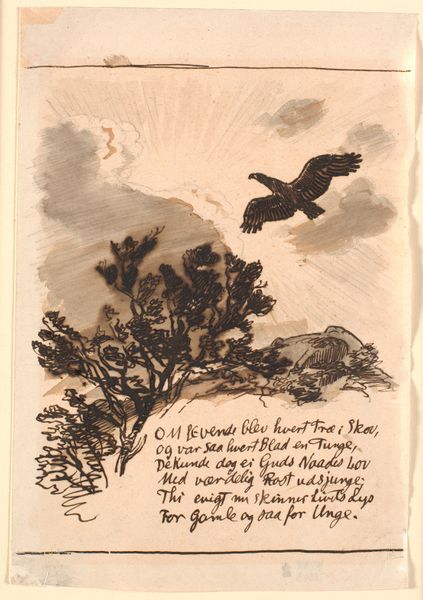 OM levende blev hvert Træ i Skov,
og var saa hvert Blad en Tunge,
De kunde dog ei Guds Naades Lov
Med værdelig Røst udsjunge;
Thi evigt nu skinner Livets Lys
For Gamle og saa for Unge.